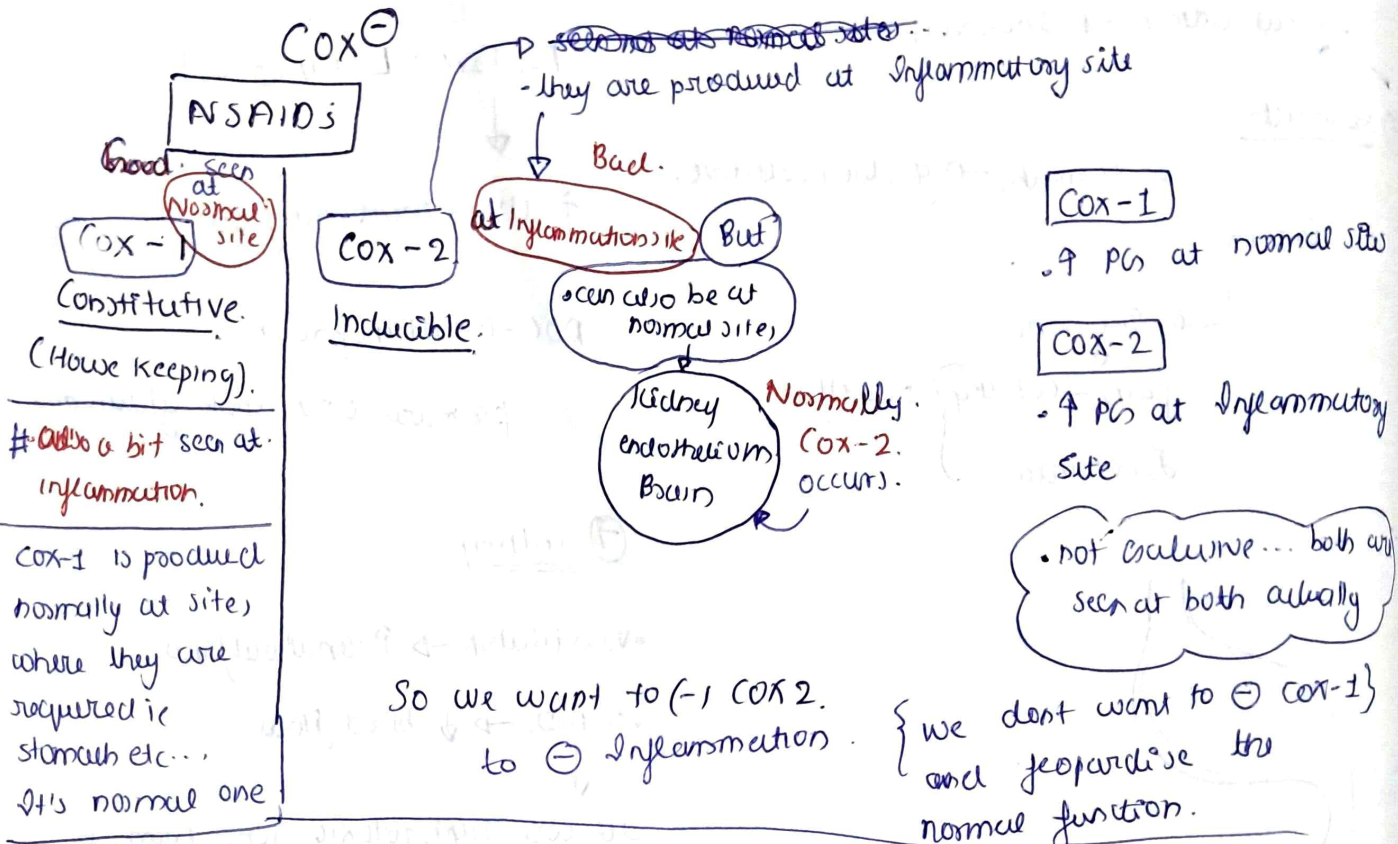 Cox⊖
NSAIDs
Good. seen
at
Normal
site
Cox-1
Constitutive.
(House Keeping).
# also a bit seen at
inflammation.
Cox-1 is produced
normally at sites
where they are
required ie
stomach etc...
It's normal one
- they are produced at Inflammatory site
Bad.
at Inflammation site
But
Cox-2
Inducible.
• can also be at
normal sites
Kidney
endothelium
Brain
Normally.
Cox-2.
occurs.
Cox-1
• ↑ PGs at normal site
Cox-2
• ↑ PGs at Inflammatory
Site
• not exclusive... both are
seen at both actually
So we want to (-) COX 2.
to ⊖ Inflammation.
{ we dont want to ⊖ cox-1}
and jeopardise the
normal function.